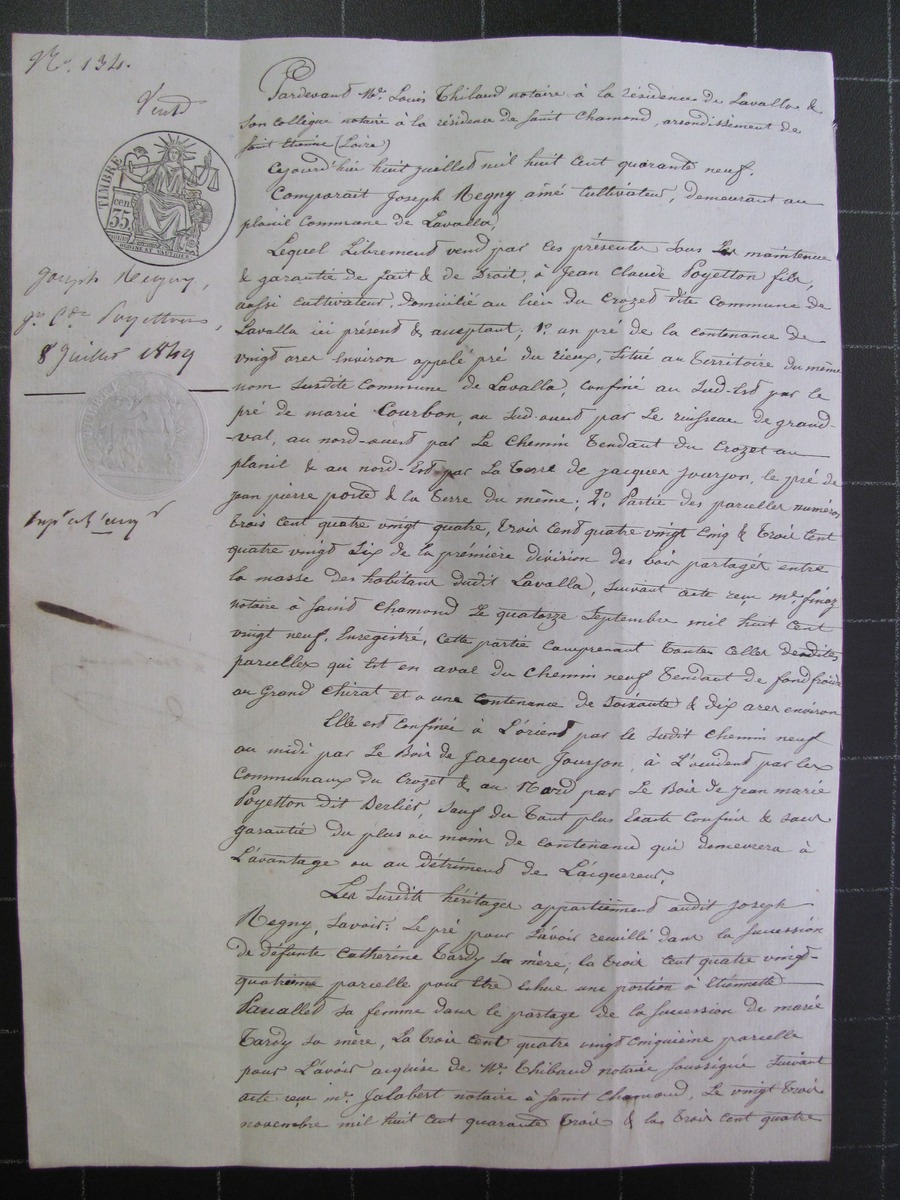 No. 134.
Vente
TIMBRE
35 cen
Joseph Regny,
Jn Cde Poyetton,
8 Juillet 1849
Pardevant Me. Louis Thibaud notaire à la résidence de Lavalla &
son collègue notaire à la résidence de Saint Chamond, arrondissement de
Saint Etienne (Loire)
Cejourd'hui huit juillet mil huit cent quarante neuf.
Comparait Joseph Regny ainé Cultivateur, demeurant au
planil Commune de Lavalla,
Lequel Librement vend par ces présentes sous la maintenue
& garantie de fait & de Droit, à Jean Claude Poyetton fils,
aussi cultivateur, domicilié au lieu du Crozet dite Commune de
Lavalla ici présent & acceptant; 1o. un pré de la contenance de
vingt ares environ appelé pré du rieux, situé au Territoire du même
nom susdite Commune de Lavalla, confiné au Sud-Est par le
pré de marie Courbon, au Sud-ouest par le ruisseau de grand-
-val, au nord-ouest par le Chemin Tendant du Crozet au
planil & au nord-Est par La Terre de Jacques Jourjon, le pré de
jean pierre porte & la Terre du même; 2o. Partie des parcelles numéros
trois cent quatre vingt quatre, trois cent quatre vingt cinq & trois cent
quatre vingt six de la première division des bois partagés entre
la masse des habitans dudit Lavalla, suivant acte reçu me. finaz
notaire à Saint Chamond le quatorze Septembre mil huit cent
vingt neuf, Enregistré, cette partie comprenant toutes celles desdites
parcelles qui est en aval du Chemin neuf Tendant de fondfroide
au grand Chirat et a une contenance de soixante & dix ares environ
Elle est confinée à L'orient par le susdit Chemin neuf
au midi par Le Bois de Jacques Jourjon, à L'occident par les
Communaux du Crozet & au Nord par Le Bois de Jean marie
Poyetton dit Berlier, sauf du Tout plus Exacte confins & sans
garantie du plus ou moins de contenance qui demeurera à
L'avantage ou au détriment de L'acquereur.
Les susdits héritages appartiennent audit Joseph
Regny, Savoir: Le pré pour L'avoir recueilli dans la succession
de défunte Catherine Tardy sa mère; la trois cent quatre vingt-
quatrième parcelle pour être échue une portion à Etiennette
Pascallet sa femme dans le partage de la succession de marie
Tardy sa mère, La trois cent quatre vingt cinquième parcelle
pour L'avoir acquise de Me. Thibaud notaire soussigné suivant
acte reçu me. Jalabert notaire à Saint Chamond, Le vingt trois
novembre mil huit cent quarante trois & la trois cent quatre